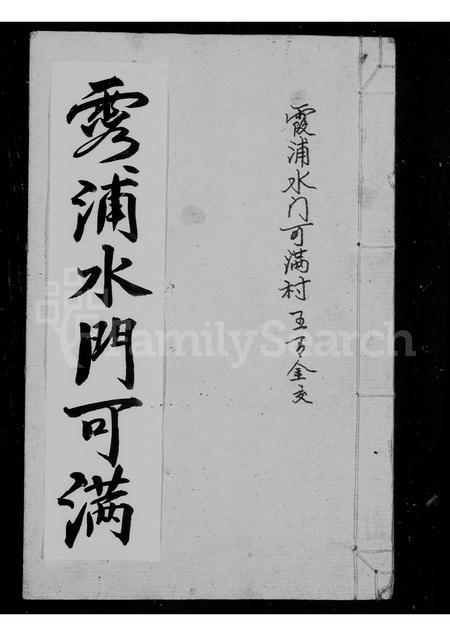 霞浦水门可满村 王万金交
霞浦水門可满
FamilySearch